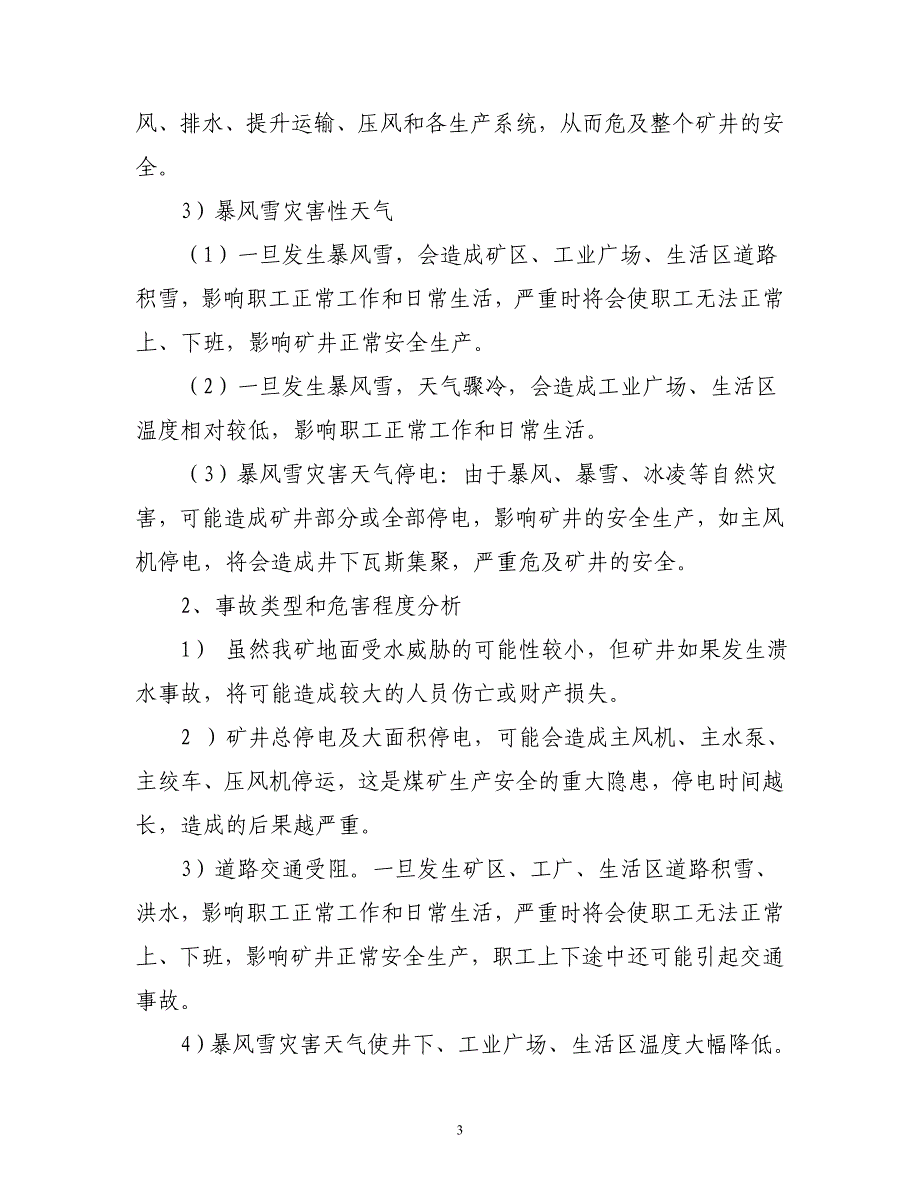 风、排水、提升运输、压风和各生产系统，从而危及整个矿井的安
全。
3）暴风雪灾害性天气
（1）一旦发生暴风雪，会造成矿区、工业广场、生活区道路
积雪，影响职工正常工作和日常生活，严重时将会使职工无法正常
上、下班，影响矿井正常安全生产。
（2）一旦发生暴风雪，天气骤冷，会造成工业广场、生活区
温度相对较低，影响职工正常工作和日常生活。
（3）暴风雪灾害天气停电：由于暴风、暴雪、冰凌等自然灾
害，可能造成矿井部分或全部停电，影响矿井的安全生产，如主风
机停电，将会造成井下瓦斯集聚，严重危及矿井的安全。
2、事故类型和危害程度分析
1） 虽然我矿地面受水威胁的可能性较小，但矿井如果发生溃
水事故，将可能造成较大的人员伤亡或财产损失。
2 ）矿井总停电及大面积停电，可能会造成主风机、主水泵、
主绞车、压风机停运，这是煤矿生产安全的重大隐患，停电时间越
长，造成的后果越严重。
3）道路交通受阻。一旦发生矿区、工广、生活区道路积雪、
洪水，影响职工正常工作和日常生活，严重时将会使职工无法正常
上、下班，影响矿井正常安全生产，职工上下途中还可能引起交通
事故。
4）暴风雪灾害天气使井下、工业广场、生活区温度大幅降低。
3